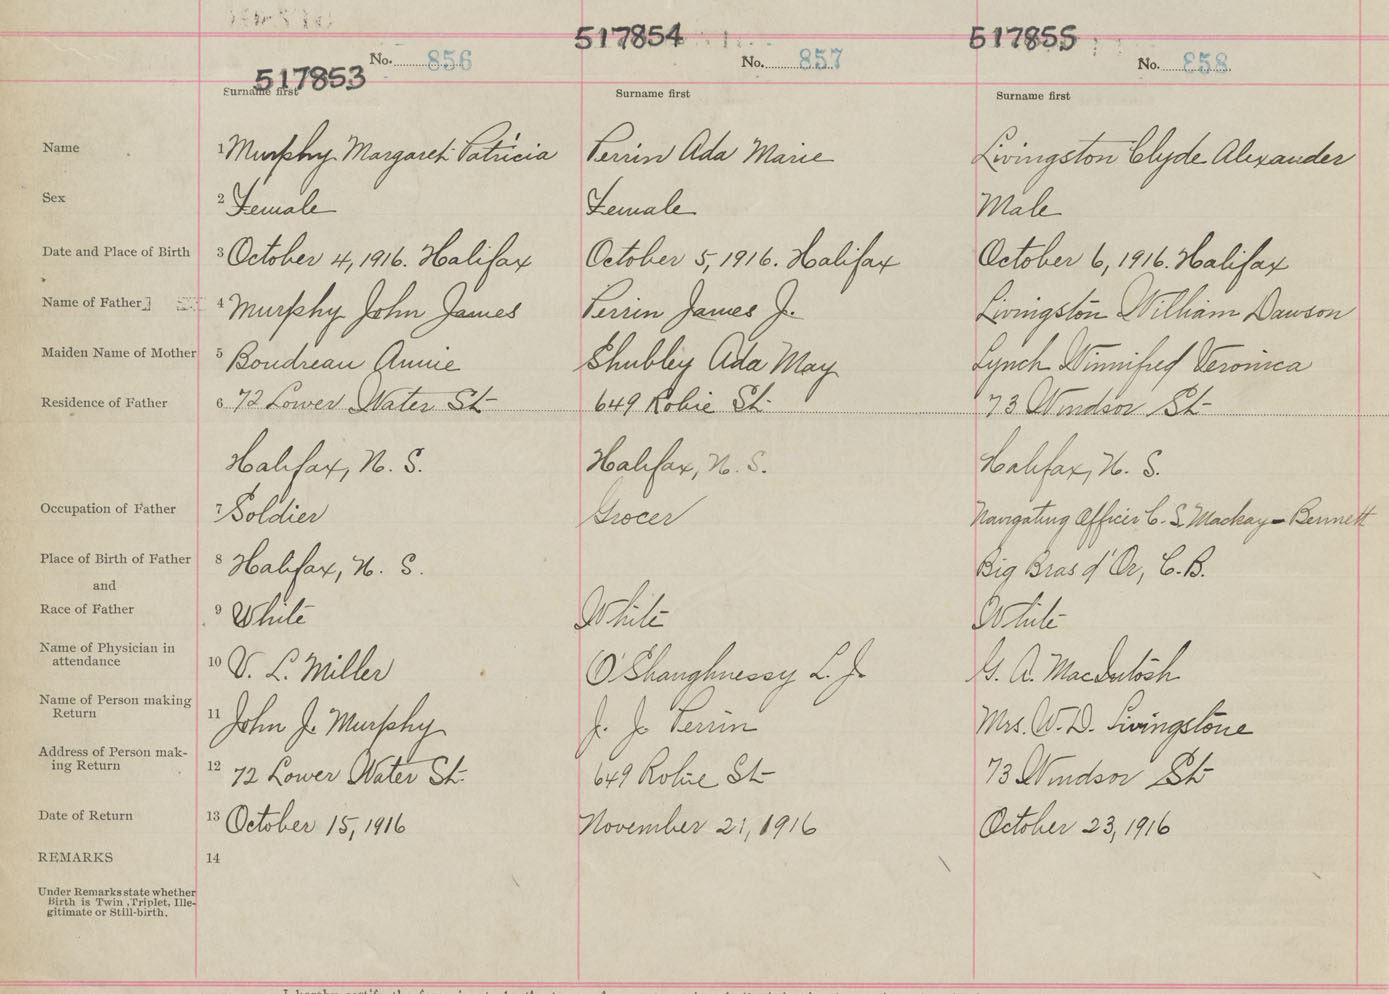 517853 517854 517855
No. 856 No. 857 No. 858
Surname first Surname first Surname first
Name 1 Murphy Margaret Patricia Perrin Ada Marie Livingston Clyde Alexander
Sex 2 Female Female Male
Date and Place of Birth 3 October 4, 1916. Halifax October 5, 1916. Halifax October 6, 1916. Halifax
Name of Father 4 Murphy John James Perrin James J. Livingston William Dawson
Maiden Name of Mother 5 Boudreau Annie Shubley Ada May Lynch Winnifred Veronica
Residence of Father 6 72 Lower Water St 649 Robie St. 73 Windsor St
Halifax, N. S. Halifax, N. S. Halifax, N. S.
Occupation of Father 7 Soldier Grocer Navigating Officer C. S. Mackay-Bennett
Place of Birth of Father 8 Halifax, N. S. Big Bras d'Or, C.B.
and
Race of Father 9 White White White
Name of Physician in
attendance 10 V. L. Miller O'Shaughnessy L. J. G. A. MacIntosh
Name of Person making
Return 11 John J. Murphy J. J. Perrin Mrs. W. D. Livingstone
Address of Person mak-
ing Return 12 72 Lower Water St. 649 Robie St 73 Windsor St
Date of Return 13 October 15, 1916 November 21, 1916 October 23, 1916
REMARKS 14
Under Remarks state whether
Birth is Twin, Triplet, Ille-
gitimate or Still-birth.